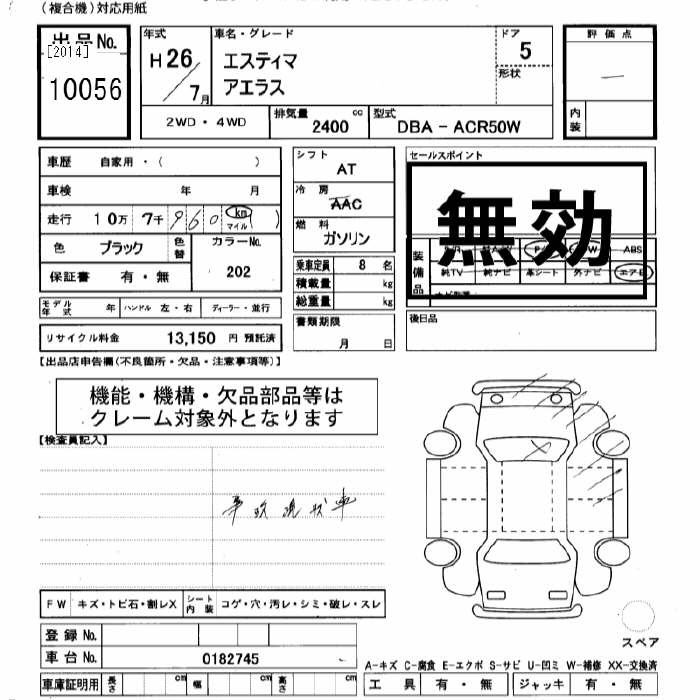 （複合機）対応用紙
出品No.
[2014]
10056
年式
H26
7月
車名・グレード
エスティマ
アエラス
ドア
5
形状
評価点
—
内装
2WD・4WD
排気量 2400 cc
型式 DBA－ACR50W
車歴 自家用・（ ）
車検 年 月
走行 10万 7千 960 km マイル
色 ブラック 色替 カラーNo. 202
保証書 有・無
モデル年式 年 ハンドル 左・右 ディーラー・並行
リサイクル料金 13,150 円 預託済
シフト
AT
冷房
AAC
燃料
ガソリン
乗車定員 8 名
積載量 kg
総重量 kg
書類期限
月 日
セールスポイント
無効
装備品
ABS
純TV 純ナビ 革シート 外ナビ エアB
後日品
【出品店申告欄(不良箇所・欠品・注意事項等)】
機能・機構・欠品部品等は
クレーム対象外となります
【検査員記入】
事故現状車
FW キズ・トビ石・割レX シート内装 コゲ・穴・汚レ・シミ・破レ・スレ
登録No.
車台No. 0182745
車庫証明用 長さ cm 幅 cm 高さ cm
スペア
A-キズ C-腐食 E-エクボ S-サビ U-凹ミ W-補修 XX-交換済
工具 有・無 ジャッキ 有・無